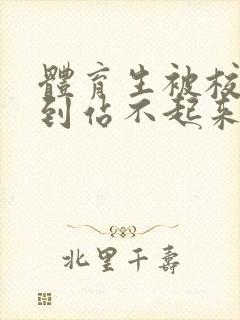 體育生被校
到佔不起來
北里千壽